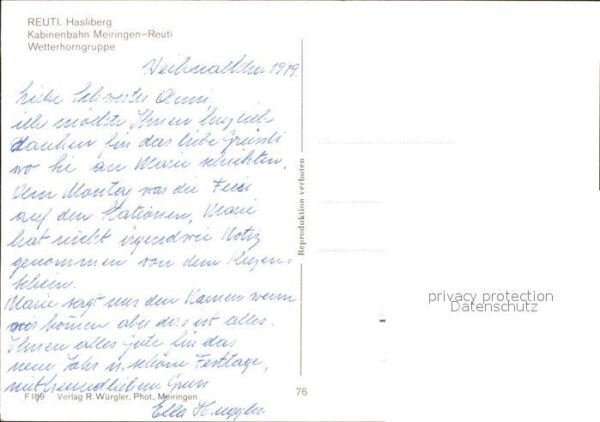 REUTI. Hasliberg
Kabinenbahn Meiringen–Reuti
Wetterhorngruppe
Weihnachten 1979.
Liebe Schwester Anni,
ich möchte Ihnen herzlich
danken für das liebe Grüssli
wo Sie an Marie schickten.
Am Montag war die Feier
auf den Stationen, Marie
hat nicht irgendwie Notiz
genommen von dem Kerzen-
schein.
Marie sagt uns den Namen wenn
wir kommen aber dies ist alles.
Ihnen alles gute für das
neue Jahr u. schöne Festtage,
mit freundlichem Gruss
Ella
F 189 Verlag R. Würgler, Phot., Meiringen
76
Reproduktion verboten
privacy protection
Datenschutz